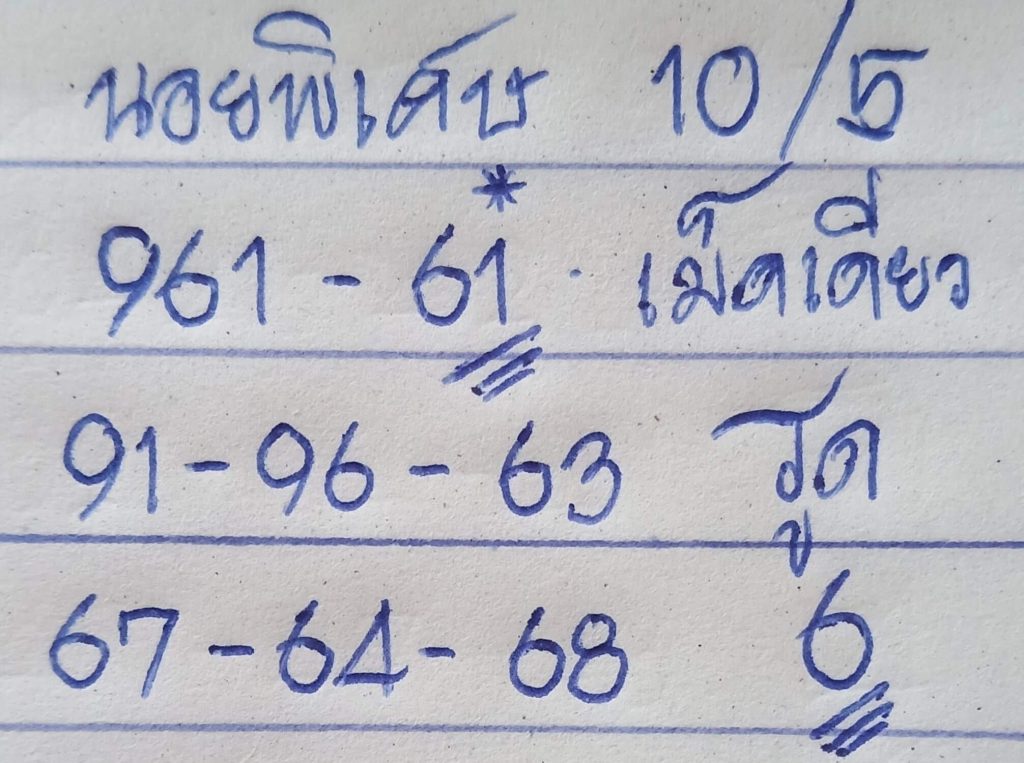 นอยพิเศษ 10/5
961 - 61 * เม็ดเดียว
91 - 96 - 63 รูด
67 - 64 - 68 6